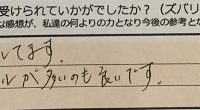 受けられていかがでしたか?(ズバリ
な感想が、私達の何よりの力となり今後の参考とな
してます。
ルが多いのも良いです。